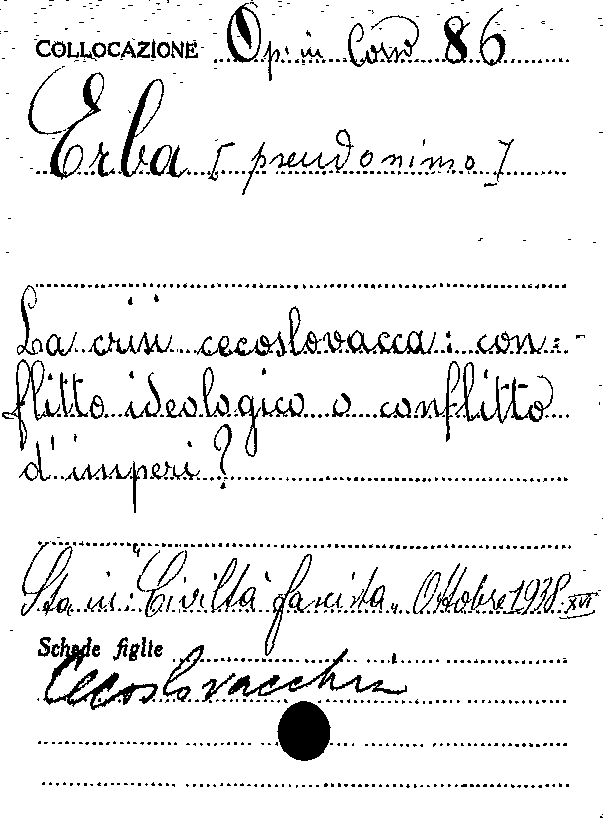 COLLOCAZIONE Op. in Corso 86
Erba [pseudonimo]
La crisi cecoslovacca: con=
flitto ideologico o conflitto
d'imperi?
Sta in: "Civiltà fascista" Ottobre 1938. XVI
Schede figlie
Cecoslovacchia